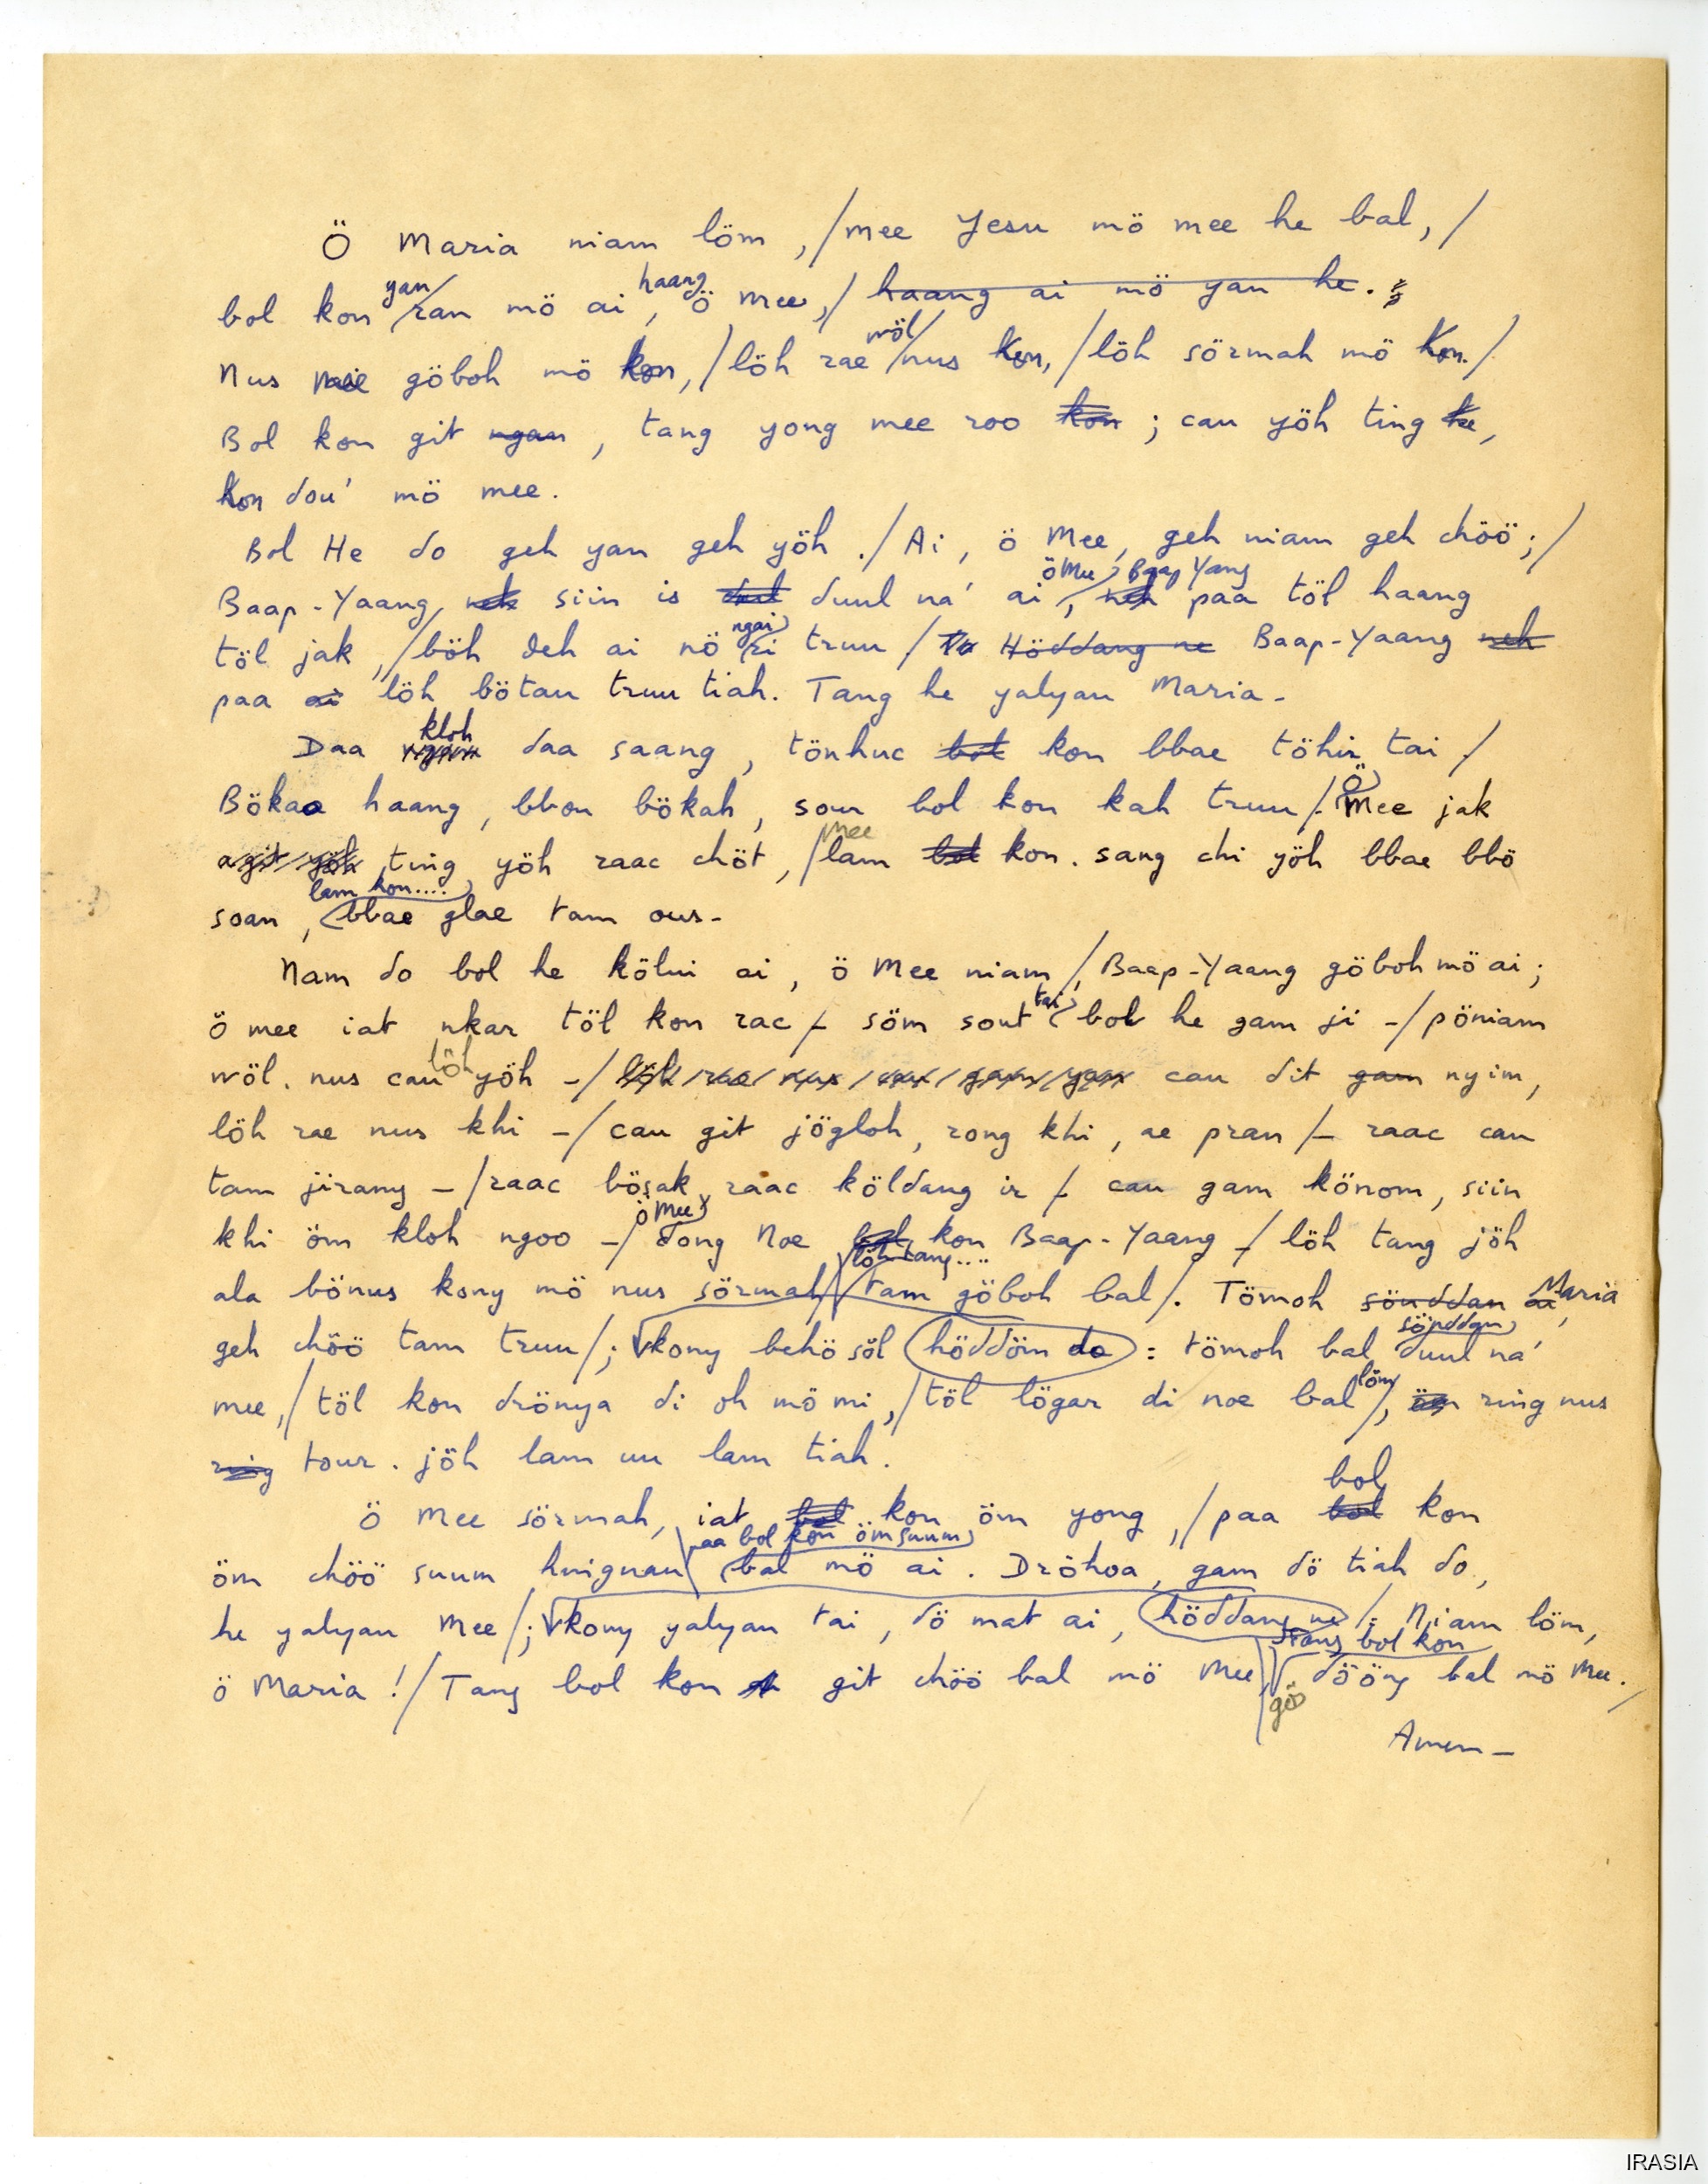 Ö Maria niam löm, / mee Yesu mö mee he bal, /
yan haang
bol kon ran mö ai, ö mee, / haang ai mö yan he.
wöl
Nus göboh mö kon, / löh rae nus kon, / löh sörmah mö kon. /
Bol kon git ngan, tang yong mee roo kon ; cau yöh ting he,
kon dou' mö mee.
Bol He do geh yan geh yöh. / Ai, ö Mee, geh niam geh chöö ; /
ö Mee Baap Yang
Baap-Yaang neh siin is duul na' ai, neh paa töl haang
ngai
töl jak, / böh deh ai nö ri truu / Höddang ne Baap-Yaang neh
paa ai löh bötau truu tiah. Tang he yalyau Maria -
kloh
Daa ngam daa saang, tönhuc bol kon bbae töhir tai /
Ö
Bökao haang, bbon bökah, sour bol kon kah truu / - Mee jak
mee
agit yöh ting yöh raac chöt, / lam bol kon. sang chi yöh bbae bbö
lam kon....
soan, bbae glae tam ous -
Nam do bol he kölui ai, ö Mee niam / Baap-Yaang göboh mö ai ;
tai
ö mee iat nkar töl kon rac / - söm sout bol he gam ji - / pöniam
löh
wöl. nus cau yöh - / löh rae nus cau gam yam cau dit gam nyim,
löh rae nus khi - / cau git jögloh, rong khi, ae pran / - raac cau
tam jirang - / raac bösak raac köldang ir / - cau gam könom, siin
ö Mee
khi öm kloh ngoo - / dong Noe bol kon Baap-Yaang - / löh tang jöh
löh tang....
ala bönus kony mö nus sörmah / tam göboh bal /. Tömoh sönddan ai Maria
söpddan
geh chöö tam truu / ; kony behö söl höddöm do : tömoh bal duul na'
löm
mee, / töl kon drönya di oh mö mi, / töl lögar di noe bal /, öm ring nus
ring tour. jöh lam uu lam tiah.
bol
Ö Mee sörmah, iat bol kon öm yong, / paa bol kon
paa bol kon öm suum
öm chöö suum huignau bal mö ai. Dröhoa, gam dö tiah do,
he yalyau Mee / ; kony yalyau tai, dö mat ai, höddang ne / : Niam löm,
tang bol kon
ö Maria ! / Tang bol kon git chöö bal mö Mee / dööng bal mö Mee. /
gö
Amen -
IRASIA